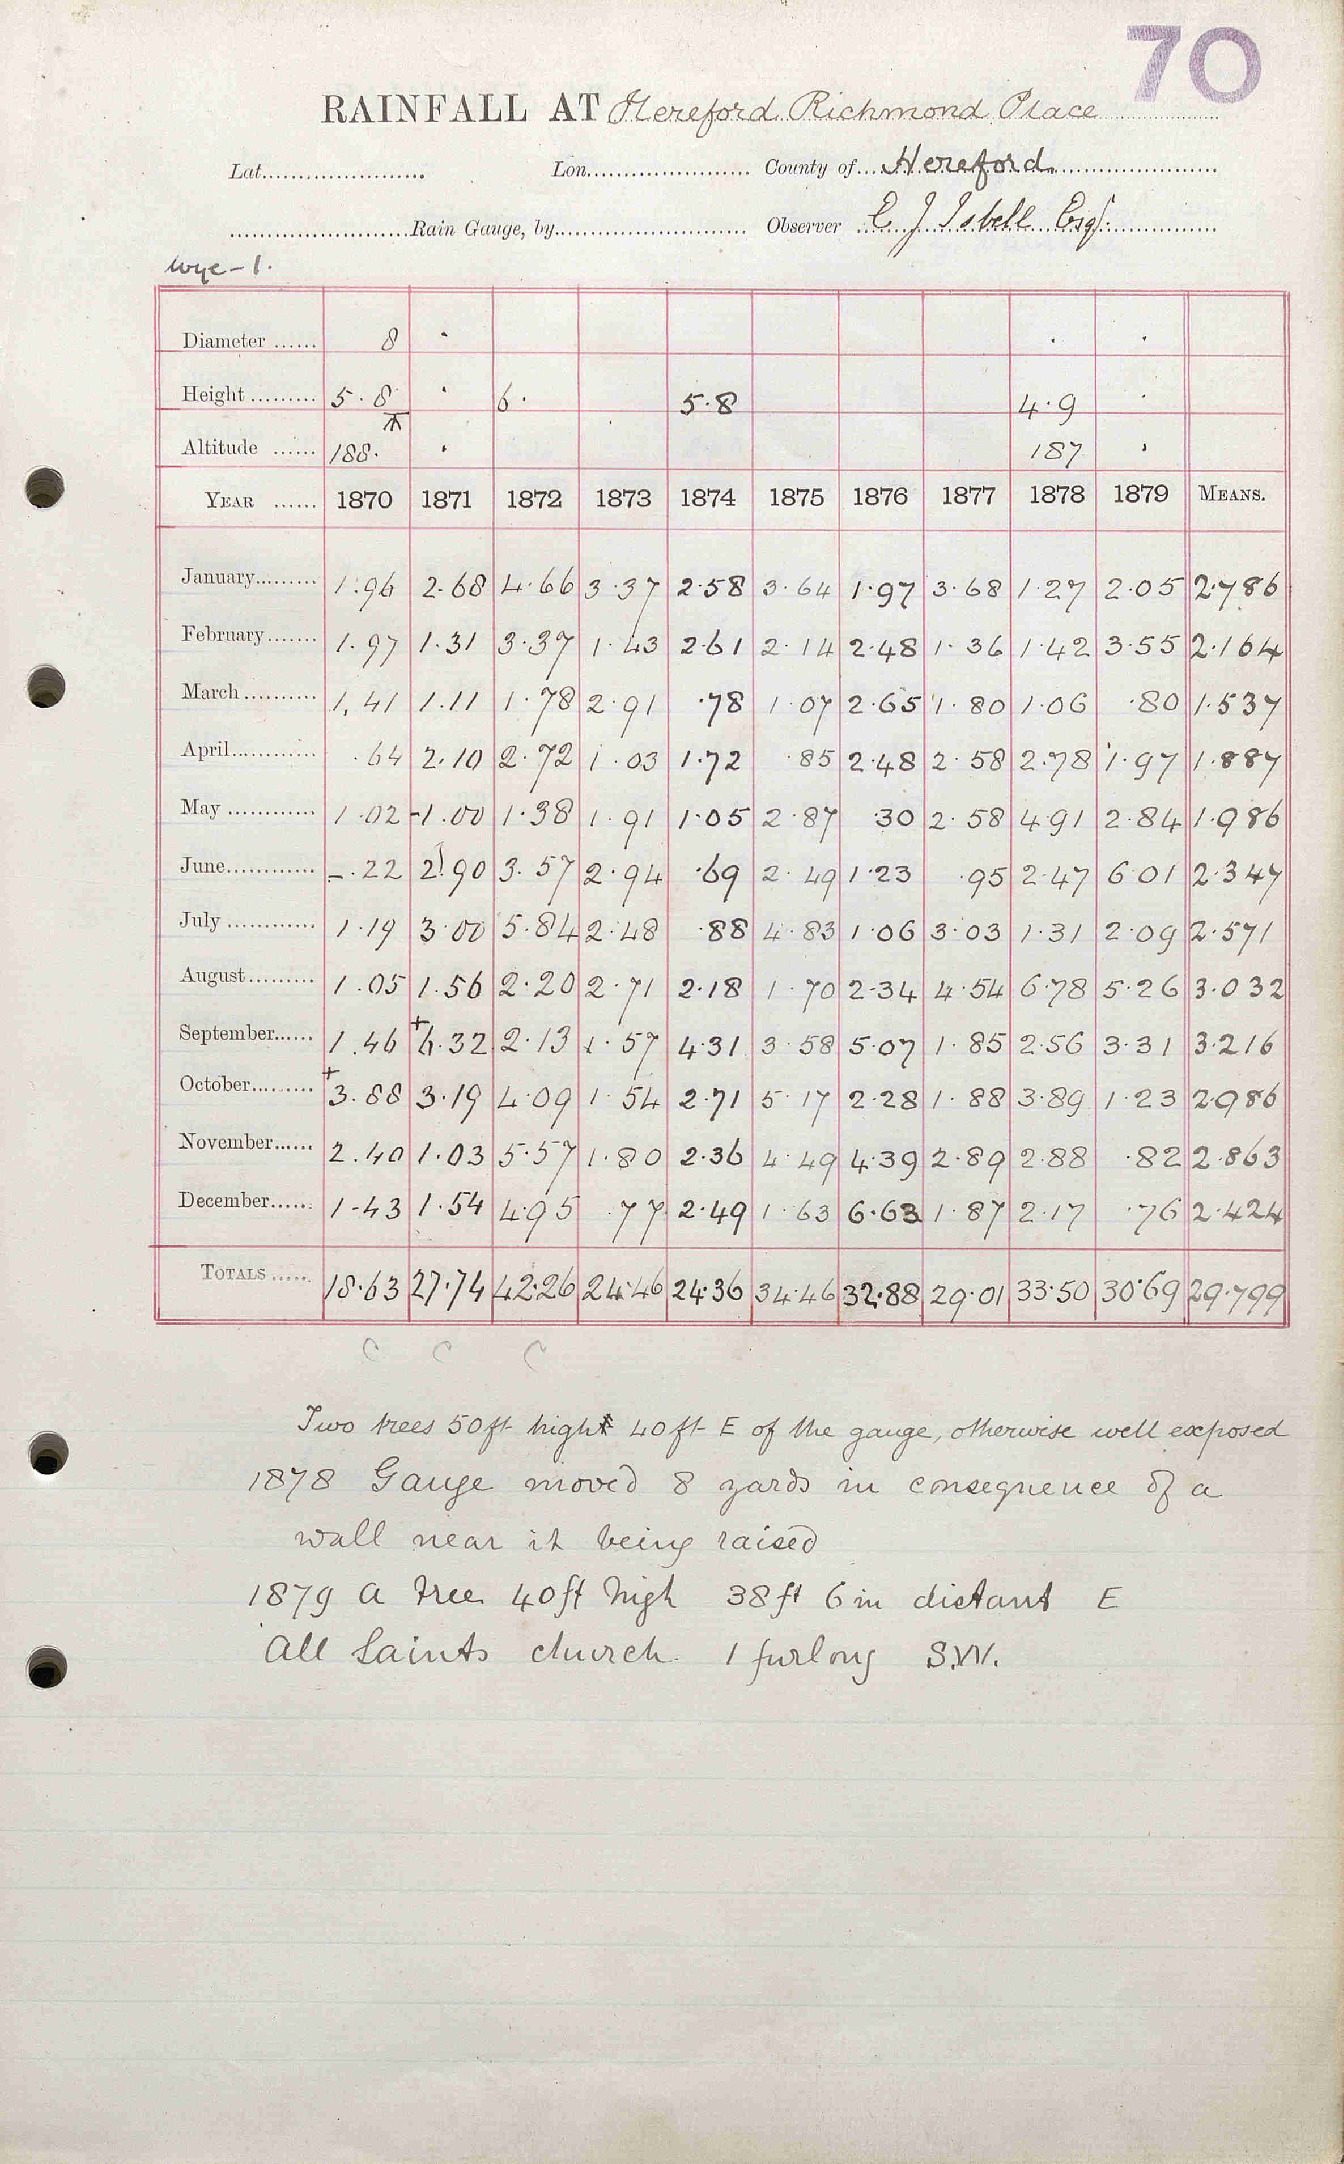 70
RAINFALL AT Hereford Richmond Place
Lat. Lon. County of Hereford
Rain Gauge, by Observer C J Isbell Esqr.
Wye - 1.
Diameter 8 · · ·
Height 5.8 · 6. 5.8 4.9 ·
Altitude 188. · 187 ·
YEAR 1870 1871 1872 1873 1874 1875 1876 1877 1878 1879 MEANS.
January 1.96 2.68 4.66 3.37 2.58 3.64 1.97 3.68 1.27 2.05 2.786
February 1.97 1.31 3.37 1.43 2.61 2.14 2.48 1.36 1.42 3.55 2.164
March 1.41 1.11 1.78 2.91 .78 1.07 2.65 1.80 1.06 .80 1.537
April .64 2.10 2.72 1.03 1.72 .85 2.48 2.58 2.78 1.97 1.887
May 1.02 -1.00 1.38 1.91 1.05 2.87 .30 2.58 4.91 2.84 1.986
June -.22 2.90 3.57 2.94 .69 2.49 1.23 .95 2.47 6.01 2.347
July 1.19 3.00 5.84 2.48 .88 4.83 1.06 3.03 1.31 2.09 2.571
August 1.05 1.56 2.20 2.71 2.18 1.70 2.34 4.54 6.78 5.26 3.032
September 1.46 +6.32 2.13 1.57 4.31 3.58 5.07 1.85 2.56 3.31 3.216
October +3.88 3.19 4.09 1.54 2.71 5.17 2.28 1.88 3.89 1.23 2.986
November 2.40 1.03 5.57 1.80 2.36 4.49 4.39 2.89 2.88 .82 2.863
December 1.43 1.54 4.95 .77 2.49 1.63 6.63 1.87 2.17 .76 2.424
TOTALS 18.63 27.74 42.26 24.46 24.36 34.46 32.88 29.01 33.50 30.69 29.799
C C C
Two trees 50ft high 40ft E of the gauge, otherwise well exposed
1878 Gauge moved 8 yards in consequence of a
wall near it being raised
1879 a tree 40ft high 38ft 6in distant E
All Saints church 1 furlong S.W.